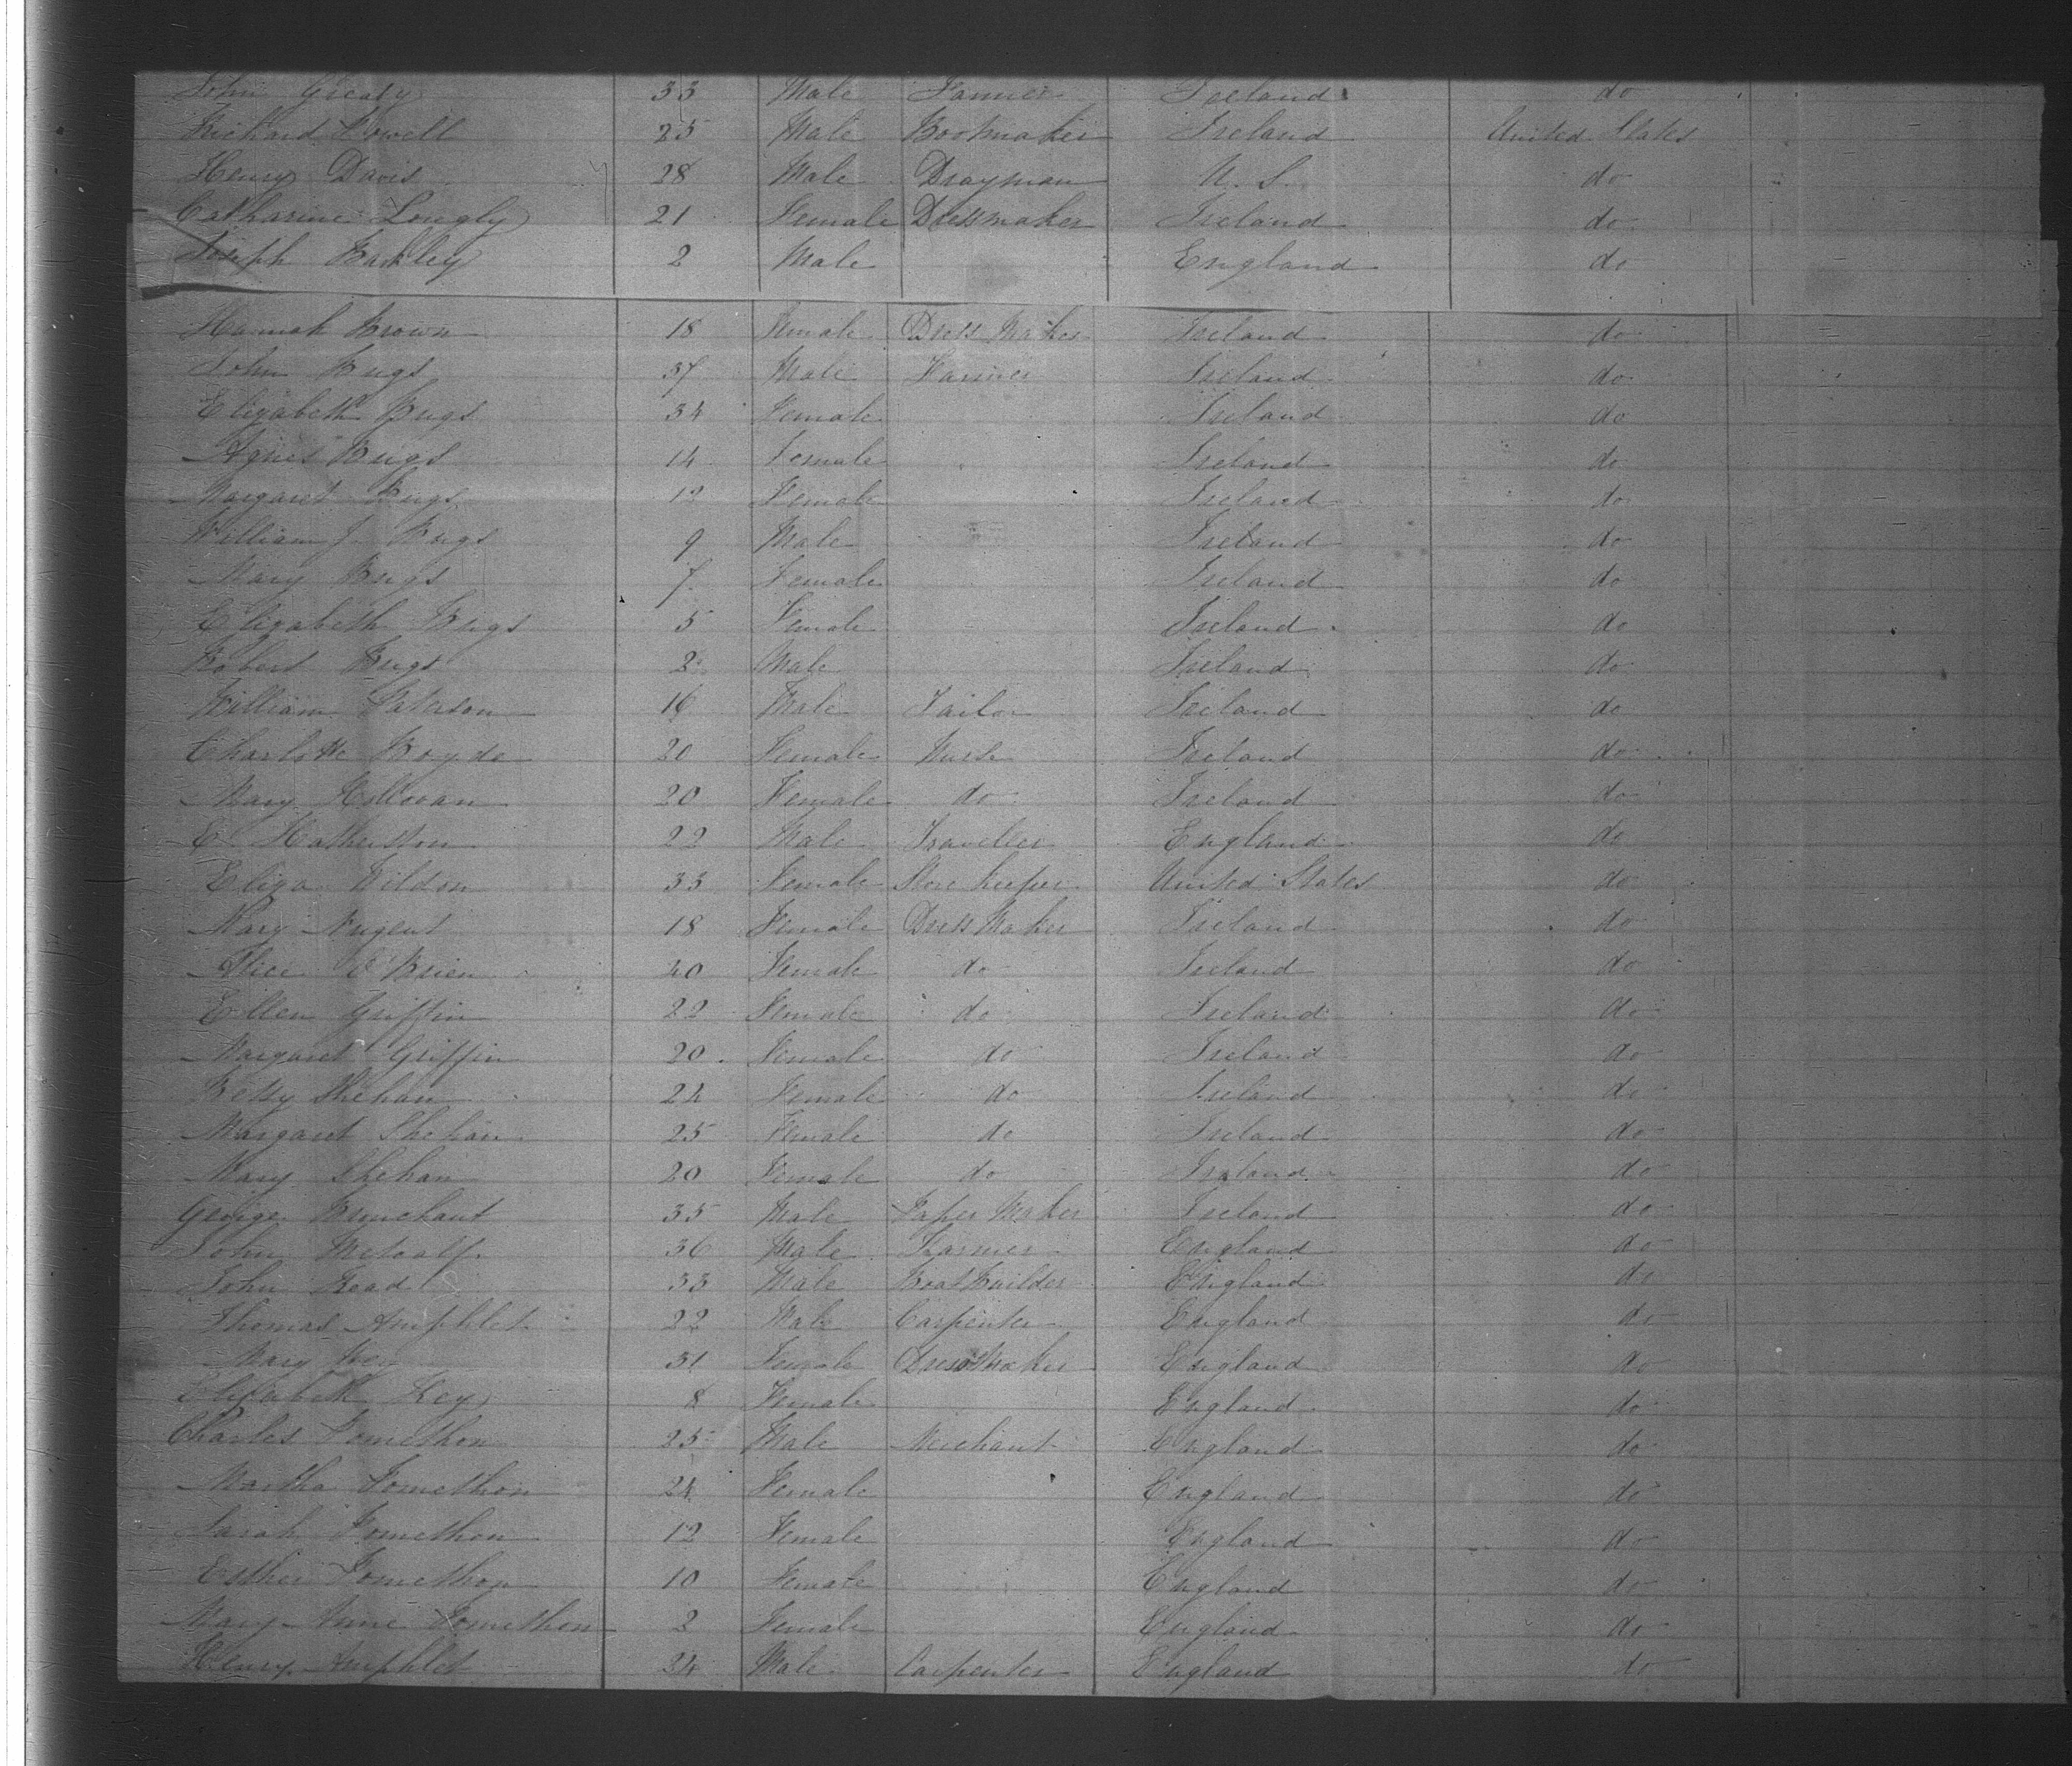 John Grealy 33 Male Farmer Ireland do
Richard Powell 25 Male Bootmaker Ireland United States
Henry Davis 28 Male Drayman U. S. do
Catharine Longly 21 Female Dressmaker Ireland do
Joseph Barkley 2 Male England do
Hannah Brown 18 Female Dress Maker Ireland do
John Bugs 37 Male Farmer Ireland do
Elizabeth Bugs 34 Female Ireland do
Agnes Bugs 14 Female Ireland do
Margaret Bugs 12 Female Ireland do
William J. Bugs 9 Male Ireland do
Mary Bugs 7 Female Ireland do
Elizabeth Bugs 5 Female Ireland do
Robert Bugs 2 Male Ireland do
William 16 Male Tailor Ireland do
Charlotte Boyde 20 Female Nurse Ireland do
Mary 20 Female do Ireland do
E. Hatherston 22 Male Traveller England do
Eliza Wilson 33 Female Store Keeper United States do
Mary Nugent 18 Female Dress Maker Ireland do
Alice O'Brien 20 Female do Ireland do
Ellen Griffin 22 Female do Ireland do
Margaret Griffin 20 Female do Ireland do
Betsy Shehan 24 Female do Ireland do
Margaret Shehan 25 Female do Ireland do
Mary Shehan 20 Female do Ireland do
George 35 Male Paper Maker Ireland do
John Metcalf 36 Male Farmer England do
John Read 33 Male Boat Builder England do
Thomas Amphlet 22 Male Carpenter England do
Mary Key 31 Female Dress Maker England do
Elizabeth Key 8 Female England do
Charles Tomethon 25 Male Merchant England do
Martha Tomethon 24 Female England do
Sarah Tomethon 12 Female England do
Esther Tomethon 10 Female England do
Mary Anne Tomethon 2 Female England do
Henry Amphlet 24 Male Carpenter England do